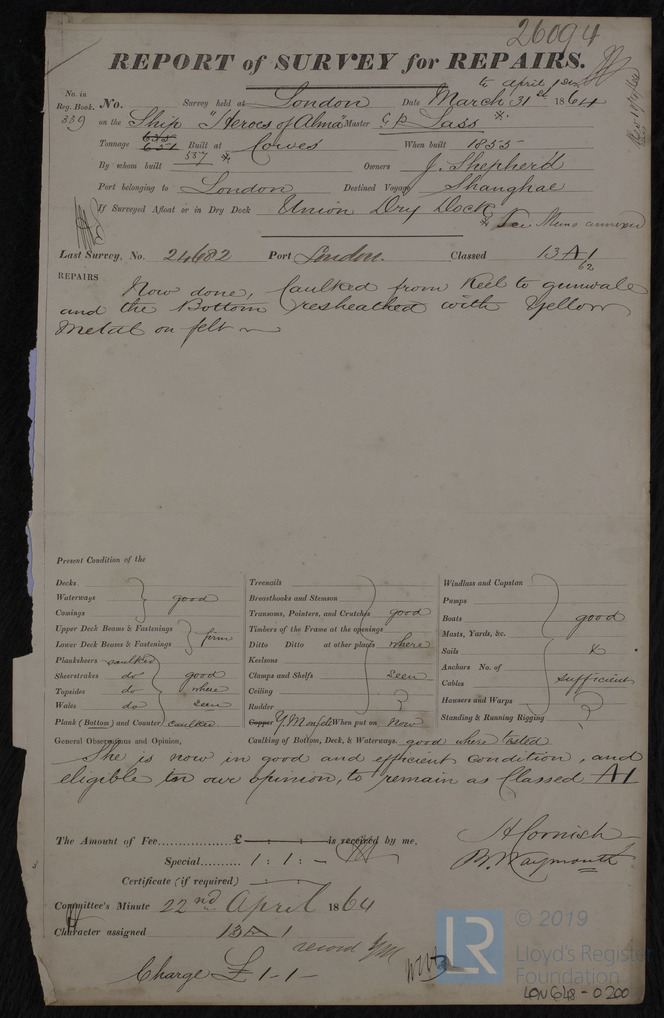 26094
REPORT of SURVEY for REPAIRS.
to April 1864
No. in Reg. Book. 339 No. Survey held at London Date March 31st 1864
on the Ship "Heroes of Alma" Master G. P. Sass
Tonnage 635 651 557 Built at Cowes When built 1855
By whom built Owners J. Shepherd
Port belonging to London Destined Voyage Shanghae
If Surveyed Afloat or in Dry Dock Union Dry Dock
See Memo annexed
Last Survey, No. 24682 Port London. Classed 13 A 1 62
REPAIRS Now done, Caulked from Keel to gunwale
and the Bottom resheathed with Yellow
Metal on felt
Present Condition of the
Decks
Waterways good
Comings
Upper Deck Beams & Fastenings
Lower Deck Beams & Fastenings firm
Planksheers caulked
Sheerstrakes do good
Topsides do where
Wales do seen
Plank (Bottom) and Counter caulked
Treenails
Breasthooks and Stemson
Transoms, Pointers, and Crutches good
Timbers of the Frame at the openings
Ditto Ditto at other places where
Keelsons
Clamps and Shelfs seen
Ceiling
Rudder
Copper Y. M on felt When put on Now
Caulking of Bottom, Deck, & Waterways. good where tested
Windlass and Capstan
Pumps
Boats good
Masts, Yards, &c.
Sails &
Anchors No. of
Cables sufficient
Hawsers and Warps
Standing & Running Rigging
General Observations and Opinion,
She is now in good and efficient condition, and
eligible in our opinion, to remain as Classed A1
The Amount of Fee £ : : is received by me,
Special 1 : 1 : -
Certificate (if required) : :
H Cornish
B. Waymouth
Committee's Minute 22nd April 1864
Character assigned 13 A 1
record YM
Charge £ 1-1-
LR
© 2019
Lloyd's Register
Foundation
LON 648-0200